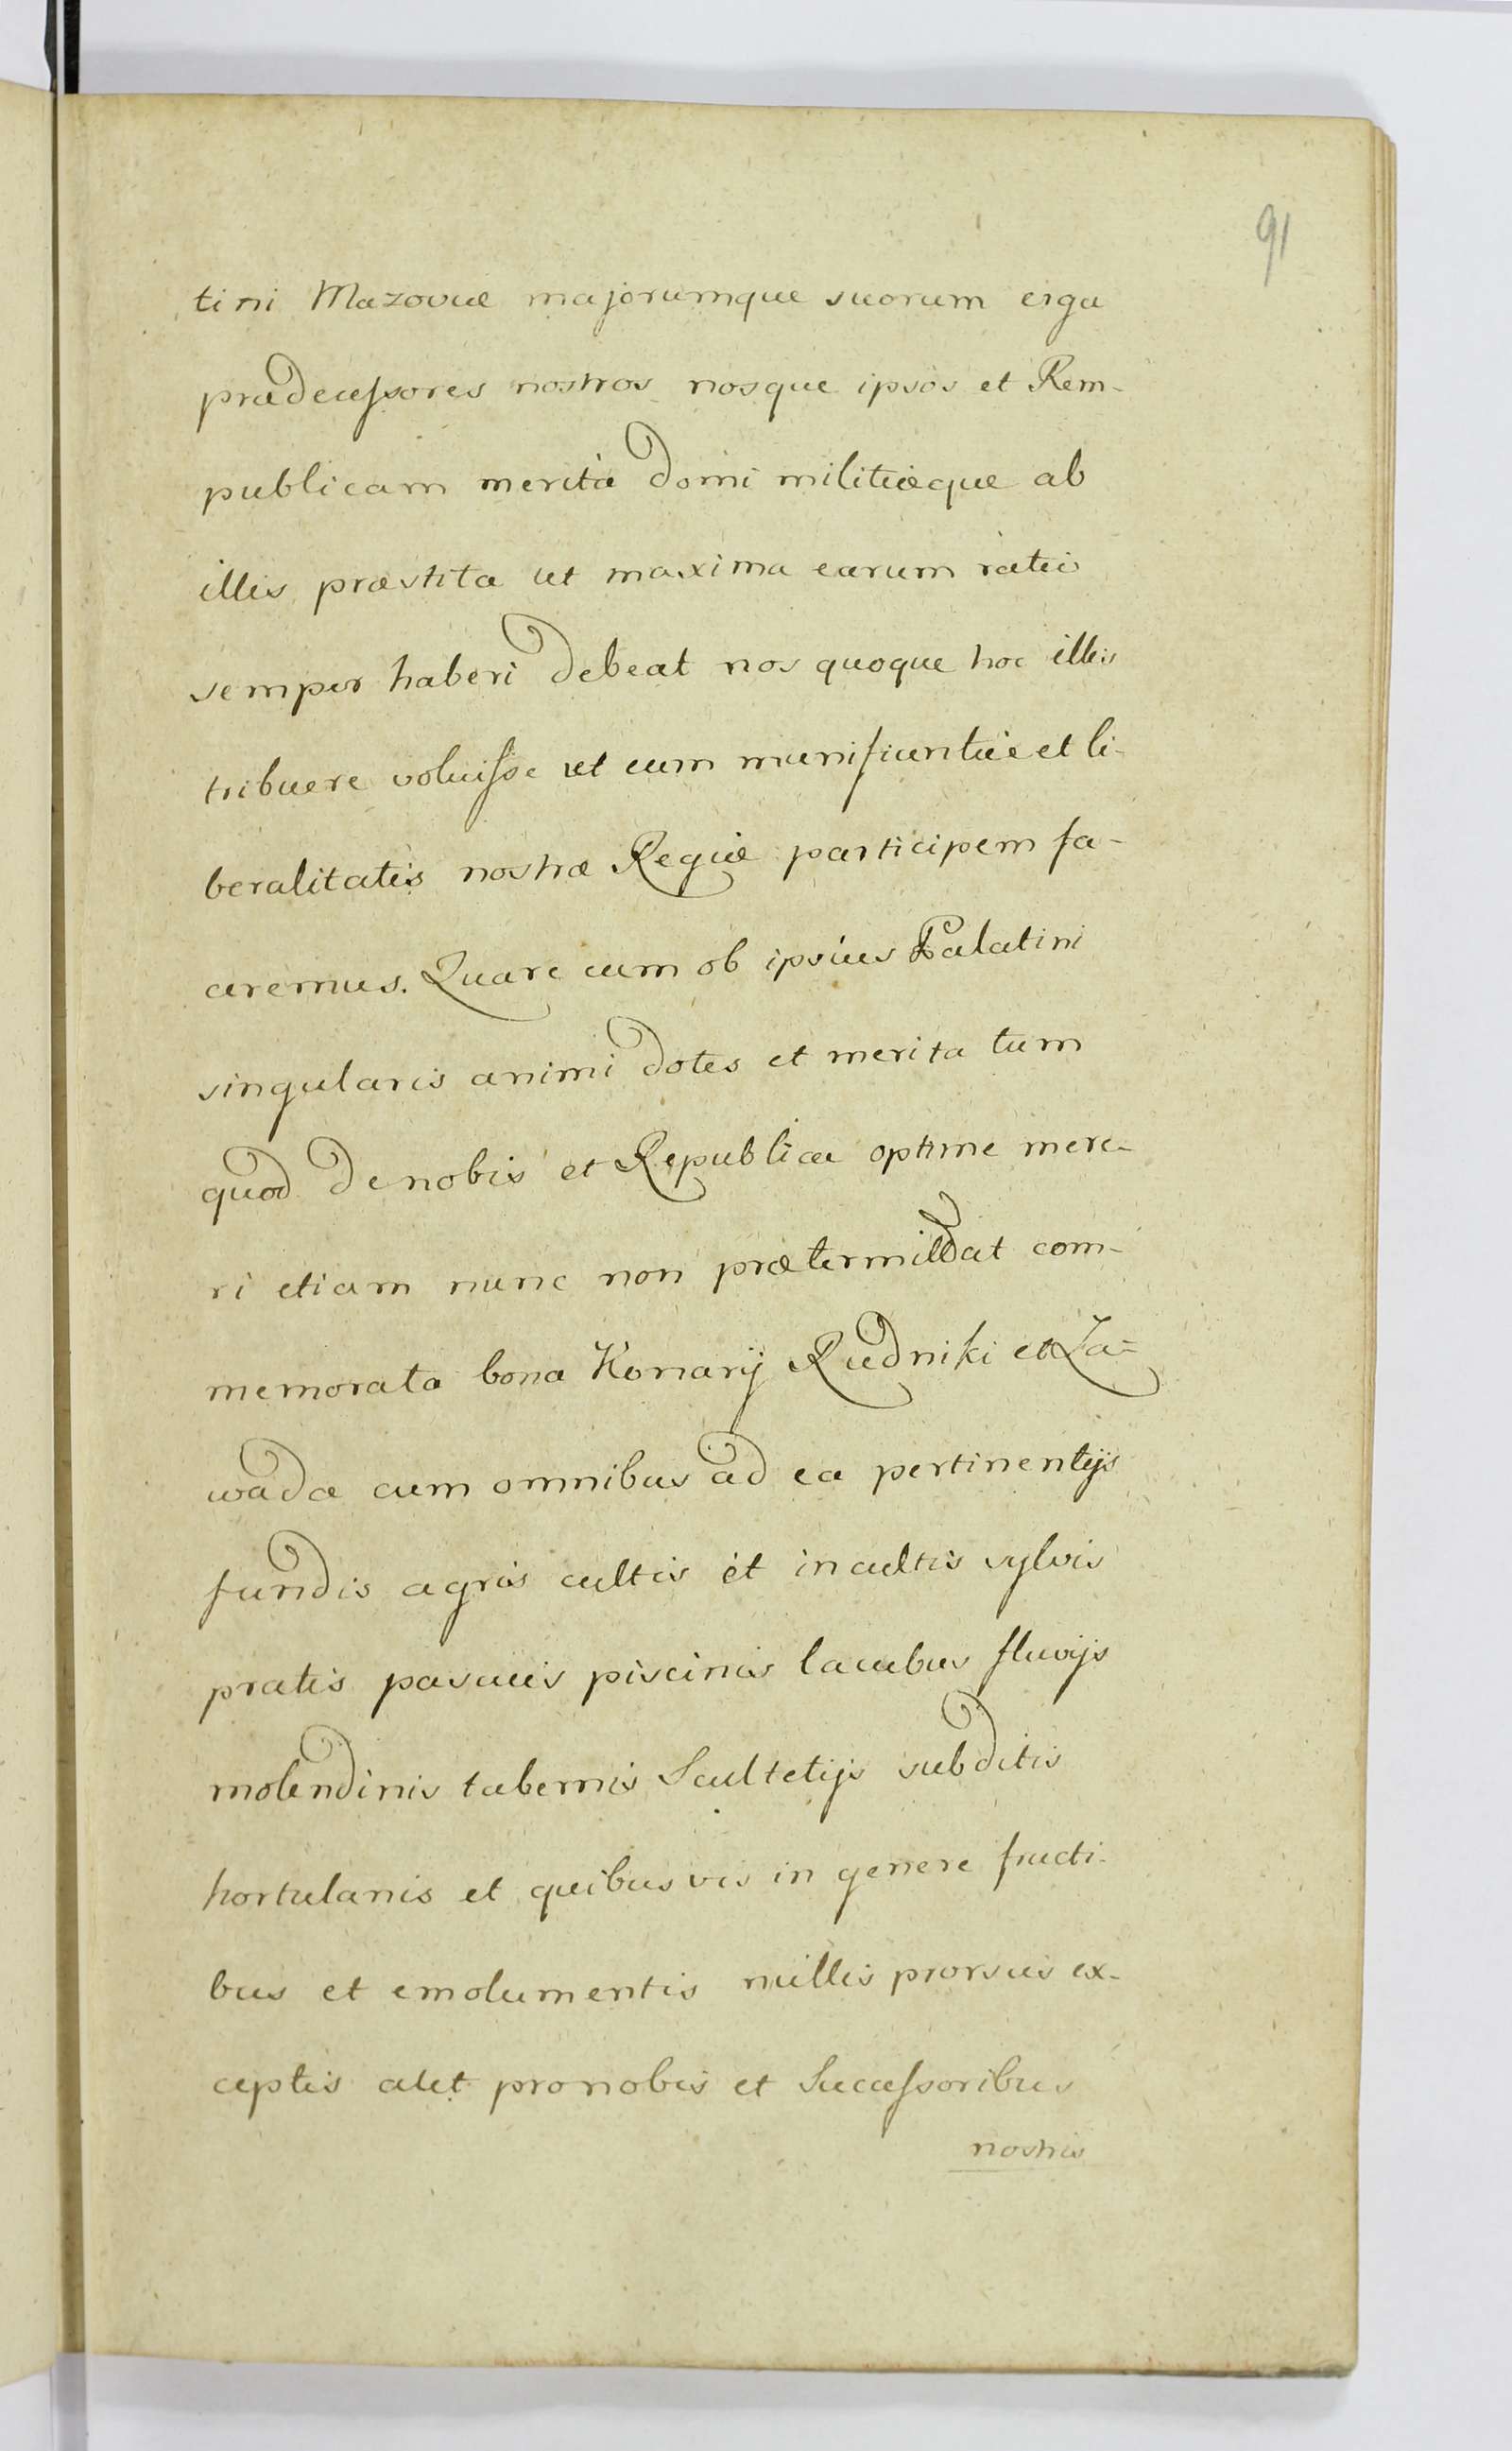 91
tini Mazoviæ majorumque suorum erga
prædecessores nostros nosque ipsos et Rem-
publicam merita domi militiæque ab
illis præstita ut maxima earum ratio
semper haberi debeat nos quoque hoc illis
tribuere voluisse ut eum munificentiæ et li-
beralitatis nostræ Regiæ participem fa-
ceremus. Quare cum ob ipsius Palatini
singularis animi dotes et merita tum
quod de nobis et Republica optime mere-
ri etiam nunc non prætermittat com-
memorata bona Konarÿ Rudniki et Za-
wada cum omnibus ad ea pertinentijs
fundis agris cultis et incultis sylvis
pratis pascuis piscinis lacubus fluvijs
molendinis tabernis Scultetijs subditis
hortulanis et quibusvis in genere fructi-
bus et emolumentis nullis prorsus ex-
ceptis alet pro nobis et Successoribus
nostris